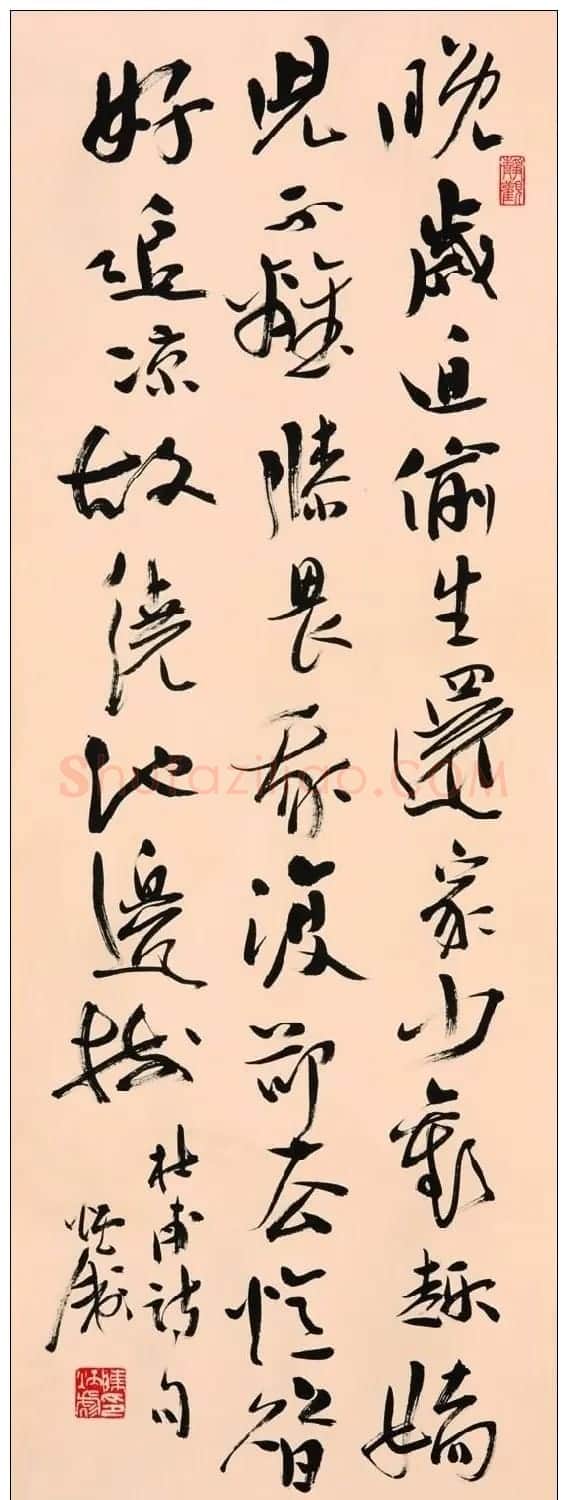 靜觀
晚歲迫偷生還家少歡趣嬌
兒不離膝畏我復卻去憶昔
好追凉故繞池邊樹
杜甫詩句
Shufaziliao.COM